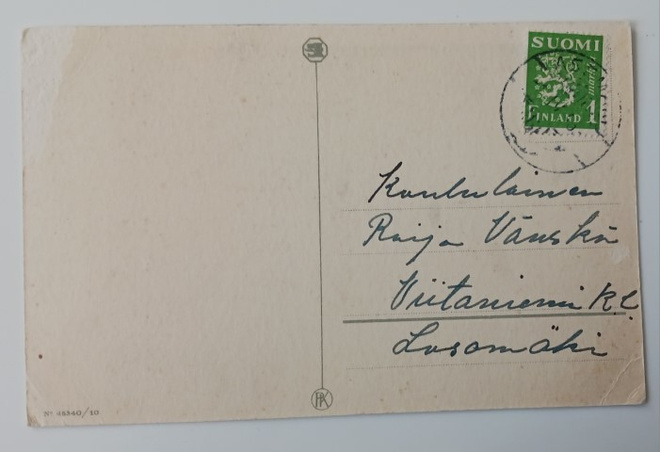 SUOMI
1
FINLAND
Koululainen
Raija Vänskä
Viitaniemi K.L.
Losomäki
Nº 48340/10